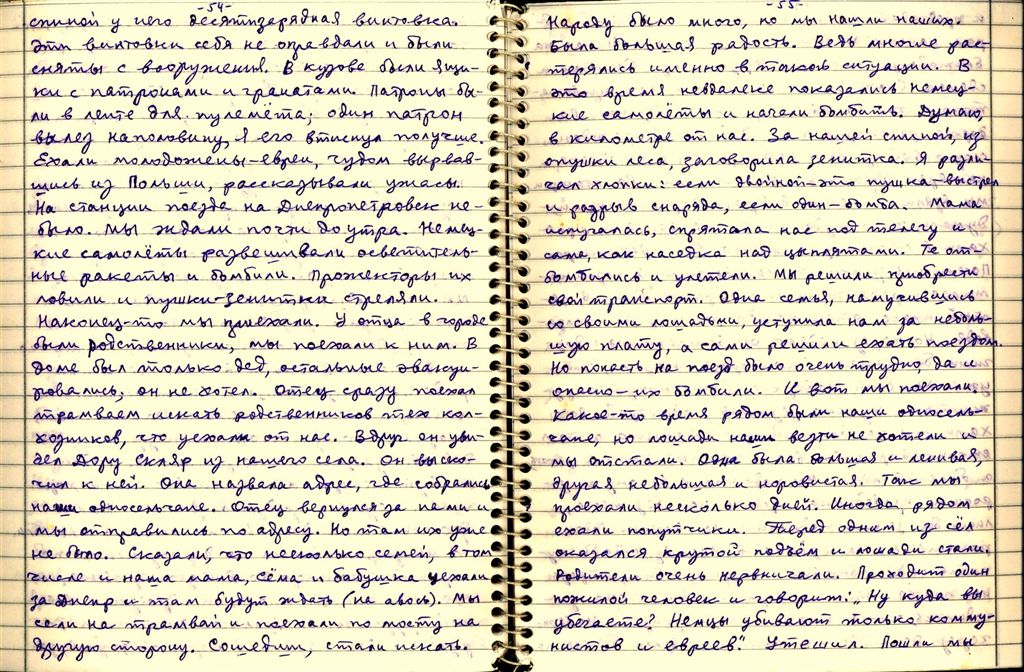 -54-
спиной у него десятизарядная винтовка.
Эти винтовки себя не оправдали и были
сняты с вооружения. В кузове были ящи-
ки с патронами и гранатами. Патроны бы-
ли в ленте для пулемёта; один патрон
вылез наполовину, я его втиснул получше.
Ехали молодожены-евреи, чудом вырвав-
шись из Польши, рассказывали ужасы.
На станции поезда на Днепропетровск не-
было. Мы ждали почти до утра. Немец-
кие самолёты развешивали осветитель-
ные ракеты и бомбили. Прожекторы их
ловили и пушки-зенитки стреляли.
Наконец-то мы приехали. У отца в городе
были родственники, мы поехали к ним. В
доме был только дед, остальные эвакуи-
ровались, он не хотел. Отец сразу поехал
трамваем искать родственников тех кол-
хозников, что уехали от нас. Вдруг он уви-
дел Дору Скляр из нашего села. Он выско-
чил к ней. Она назвала адрес, где собрались
наши односельчане. Отец вернулся за нами и
мы отправились по адресу. Но там их уже
не было. Сказали, что несколько семей, в том
числе и наша мама, Сёма и бабушка уехали
за Днепр и там будут ждать (на авось). Мы
сели на трамвай и поехали по мосту на
другую сторону. Сошедши, стали искать.
-55-
Народу было много, но мы нашли наших.
Была большая радость. Ведь многие рас-
терялись именно в такой ситуации. В
это время невдалеке показались немец-
кие самолёты и начали бомбить. Думаю,
в километре от нас. За нашей спиной, из
опушки леса, заговорила зенитка. Я разли-
чал хлопки: если двойной-это пушка-выстрел
и разрыв снаряда, если один-бомба. Мама
испугалась, спрятала нас под телегу и
сама, как наседка над цыплятами. Те от-
бомбились и улетели. Мы решили приобрести
свой транспорт. Одна семья, намучившись
со своими лошадьми, уступила нам за неболь-
шую плату, а сами решили ехать поездом.
Но попасть на поезд было очень трудно, да и
опасно-их бомбили. И вот мы поехали.
Какое-то время рядом были наши односель-
чане, но лошади наши везти не хотели и
мы отстали. Одна была большая и ленивая,
другая небольшая и норовистая. Так мы
проехали несколько дней. Иногда рядом
ехали попутчики. Перед одним из сёл
оказался крутой подъём и лошади стали.
Родители очень нервничали. Проходит один
пожилой человек и говорит: „Ну куда вы
убегаете? Немцы убивают только комму-
нистов и евреев." Утешил. Пошли мы